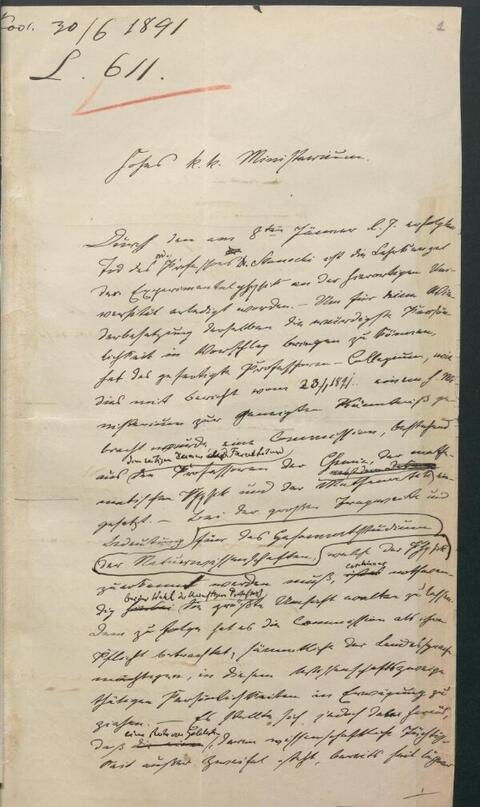 30/6 1891
L. 611.
Hohes k. k. Ministerium.
Durch den am 8ten Jänner l. J. erfolgten
Tod des Professors Dr. Stanecki ist die Lehrkanzel
der Experimentalphysik an der hierortigen Uni-
versität erledigt worden. – Um für die Wie-
derbesetzung derselben die würdigste Persön-
lichkeit in Vorschlag bringen zu können,
hat das gefertigte Professoren-Collegium, wie
dies mit Bericht vom 23/1 1891. einem h. Mi-
nisterium zur geneigten Kenntniß ge-
bracht wurde, eine Commission, bestehend
aus den Professoren der Chemie, der mathe-
matischen Physik und der Mathematik ein-
gesetzt. – Bei der großen Tragweite und
Bedeutung für das Gesammtstudium
der Naturwissenschaften, welche der Physik
zuerkannt werden muß, nothwen-
dig die größte Umsicht walten zu lassen.
Dem zu Folge hat es die Commission als ihre
Pflicht betrachtet, sämmtliche der Landessprache
mächtigen, in diesem Wissenschaftszweige
thätigen Persönlichkeiten in Erwägung zu
ziehen. – Es stellte sich jedoch dabei heraus,
daß eine Reihe von Gelehrten, deren wissenschaftliche Tüchtig-
keit außer Zweifel steht, bereits seit länger